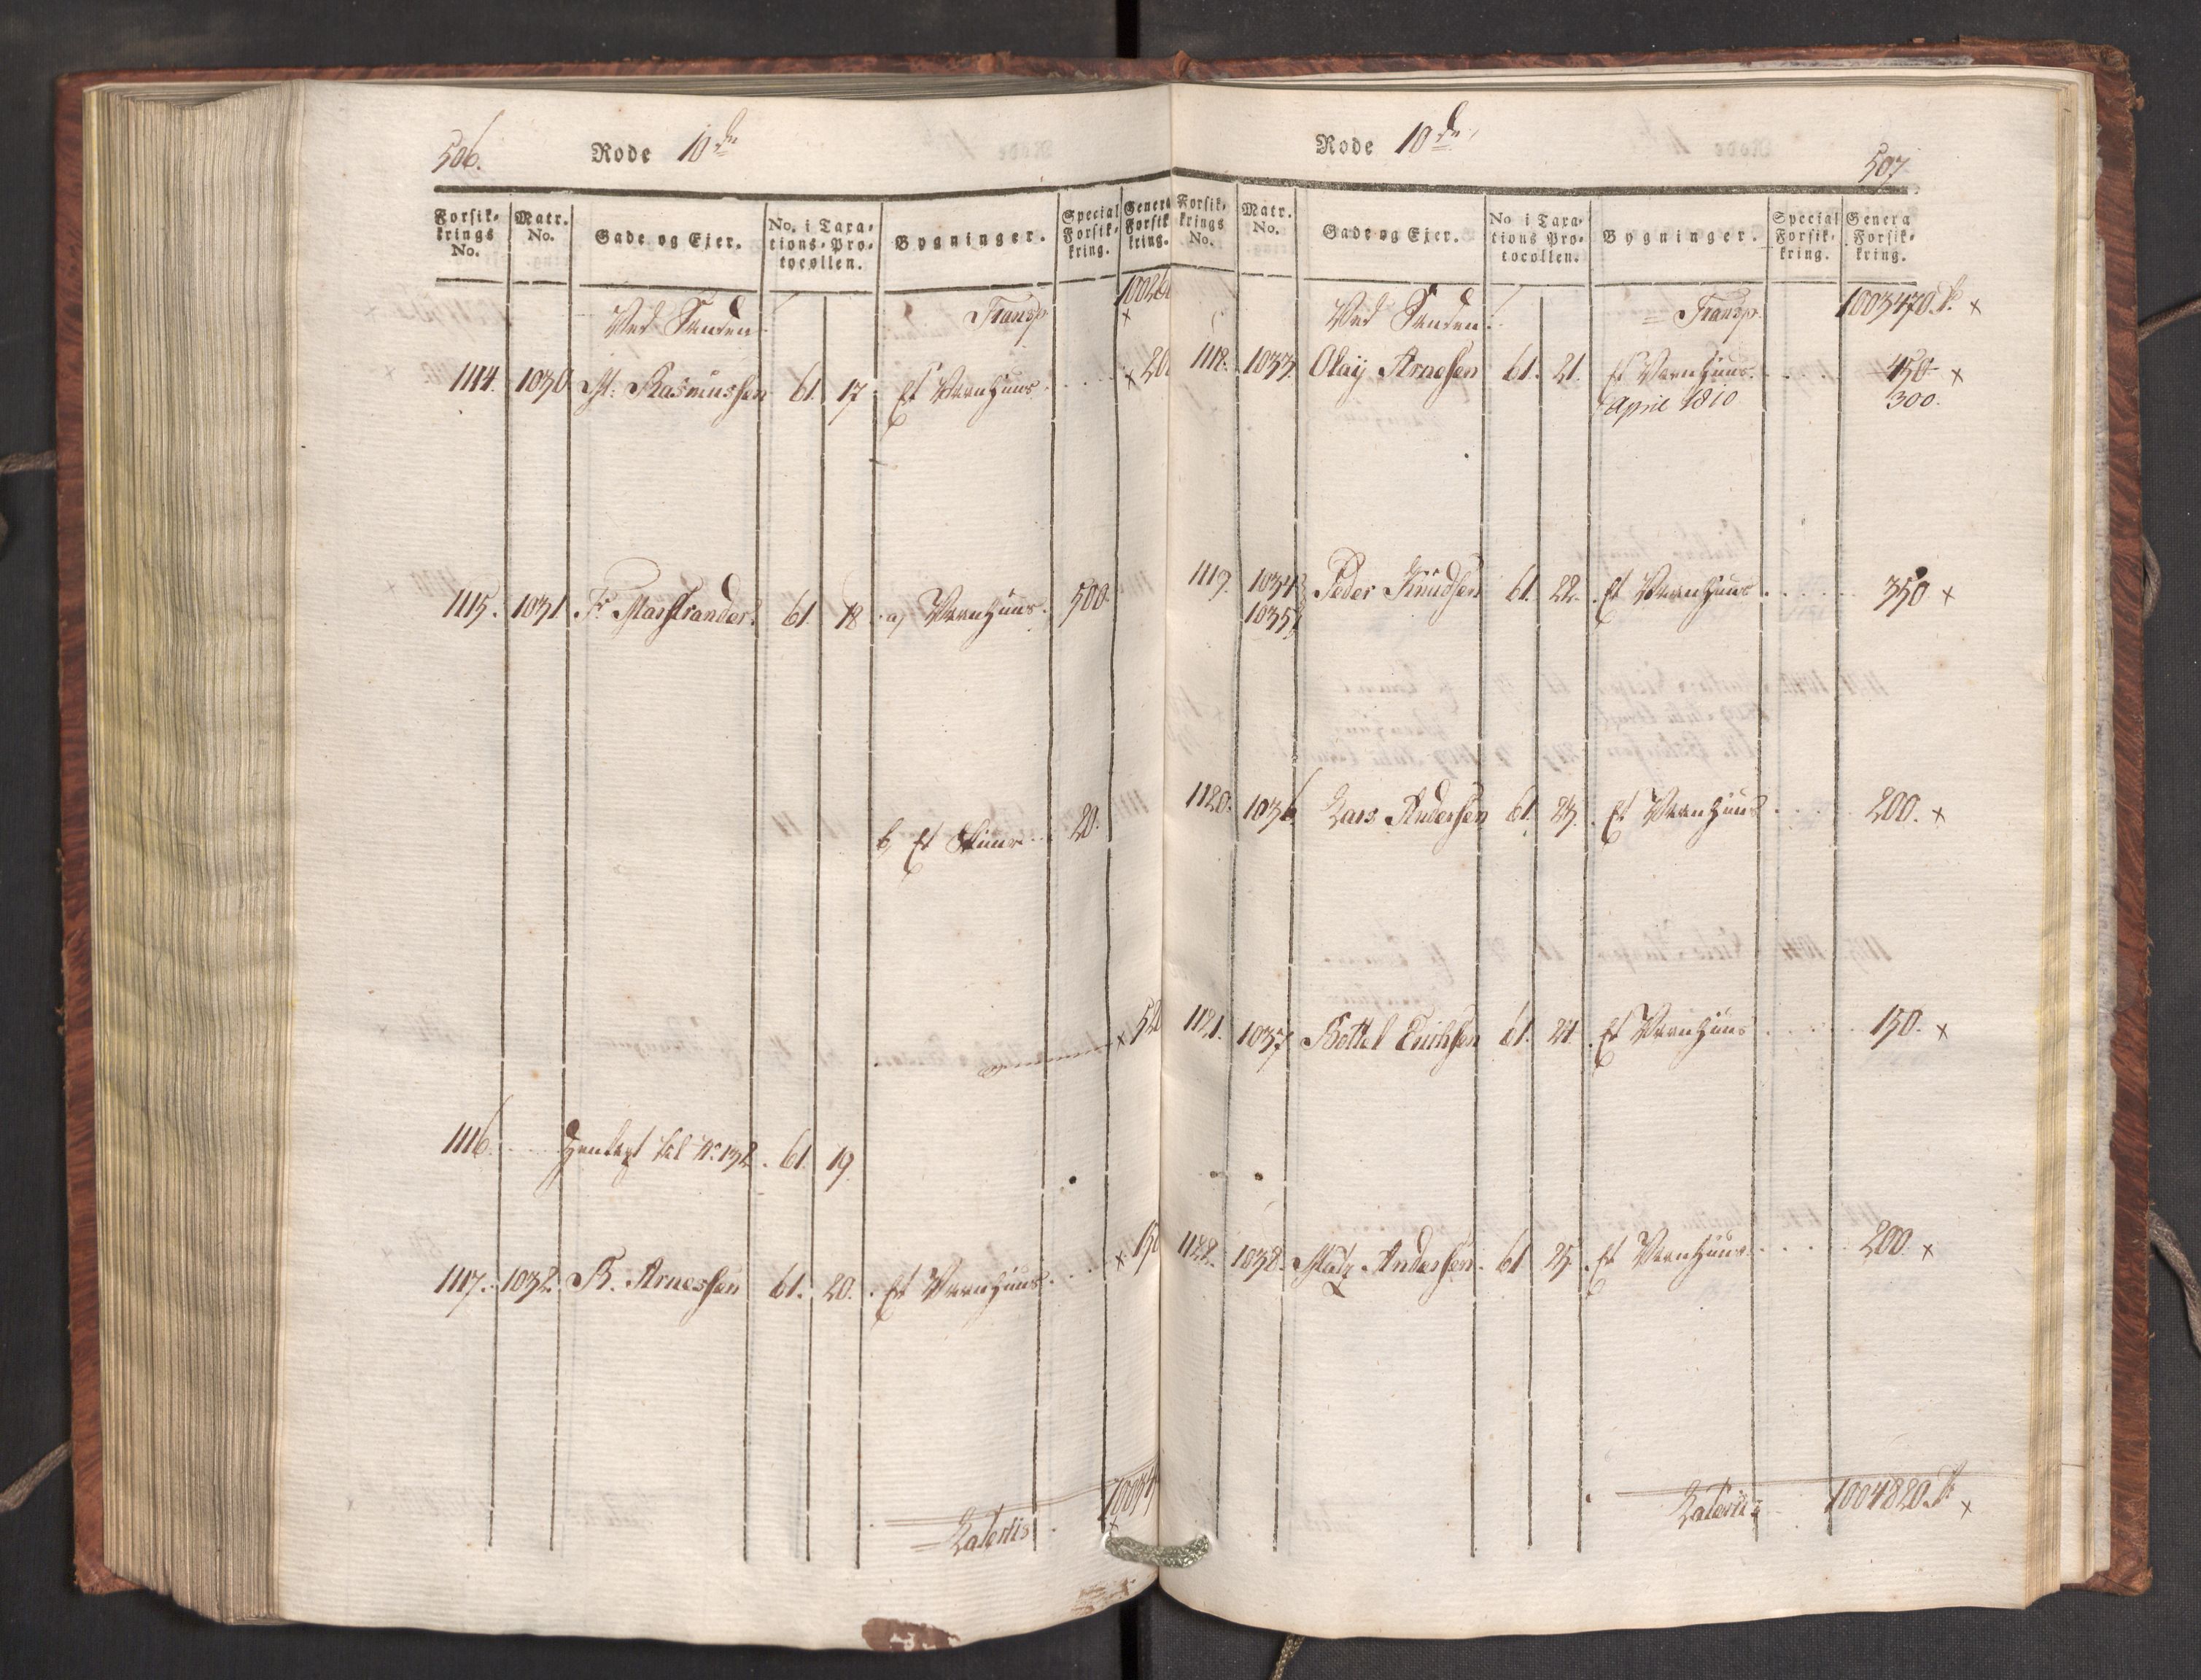 506.
Rode 10de
Forsik-
krings
No.
Matr.
No.
Gade og Ejer.
No. i Taxa-
tions-Pro-
tocollen.
Bygninger.
Special
Forsik-
kring.
Genera
Forsik
kring.
Ved Stranden
Transp.
1114. 1030 61. 17. Et Vaanhuus
Rasmussen
1115. 1031. Fr. Marstrander. 61. 18. a, Vaanhuus. 500.
b, Et Skuur 20.
520
1116. Henlagt til No. 132. 61. 19.
1117. 1032. B. Arnessen 61. 20. Et Vaanhuus. 150
Lateris
Rode 10de
507
Forsik-
krings
No.
Matr.
No.
Gade og Ejer.
No i Taxa-
tions Pro-
tocollen.
Bygninger.
Special
Forsik-
kring.
Genera
Forsik-
kring.
Ved Stranden.
Transp. 1003470.
1118. 1033. Olaÿ Arnesen 61. 21. Et Vaanhuus. 450
April 1810 300.
1119. 1034 Peder Knudsen 61. 22. Et Vaanhuus 350
1035
1120. 1036. Lars Andersen 61. 23. Et Vaanhuus 200.
1121. 1037 Bottel Erichsen 61. 24. Et Vaanhuus 150.
1122. 1038. Madz Andersen. 61 25. Et Vaanhuus. 200.
Lateris 1004820.